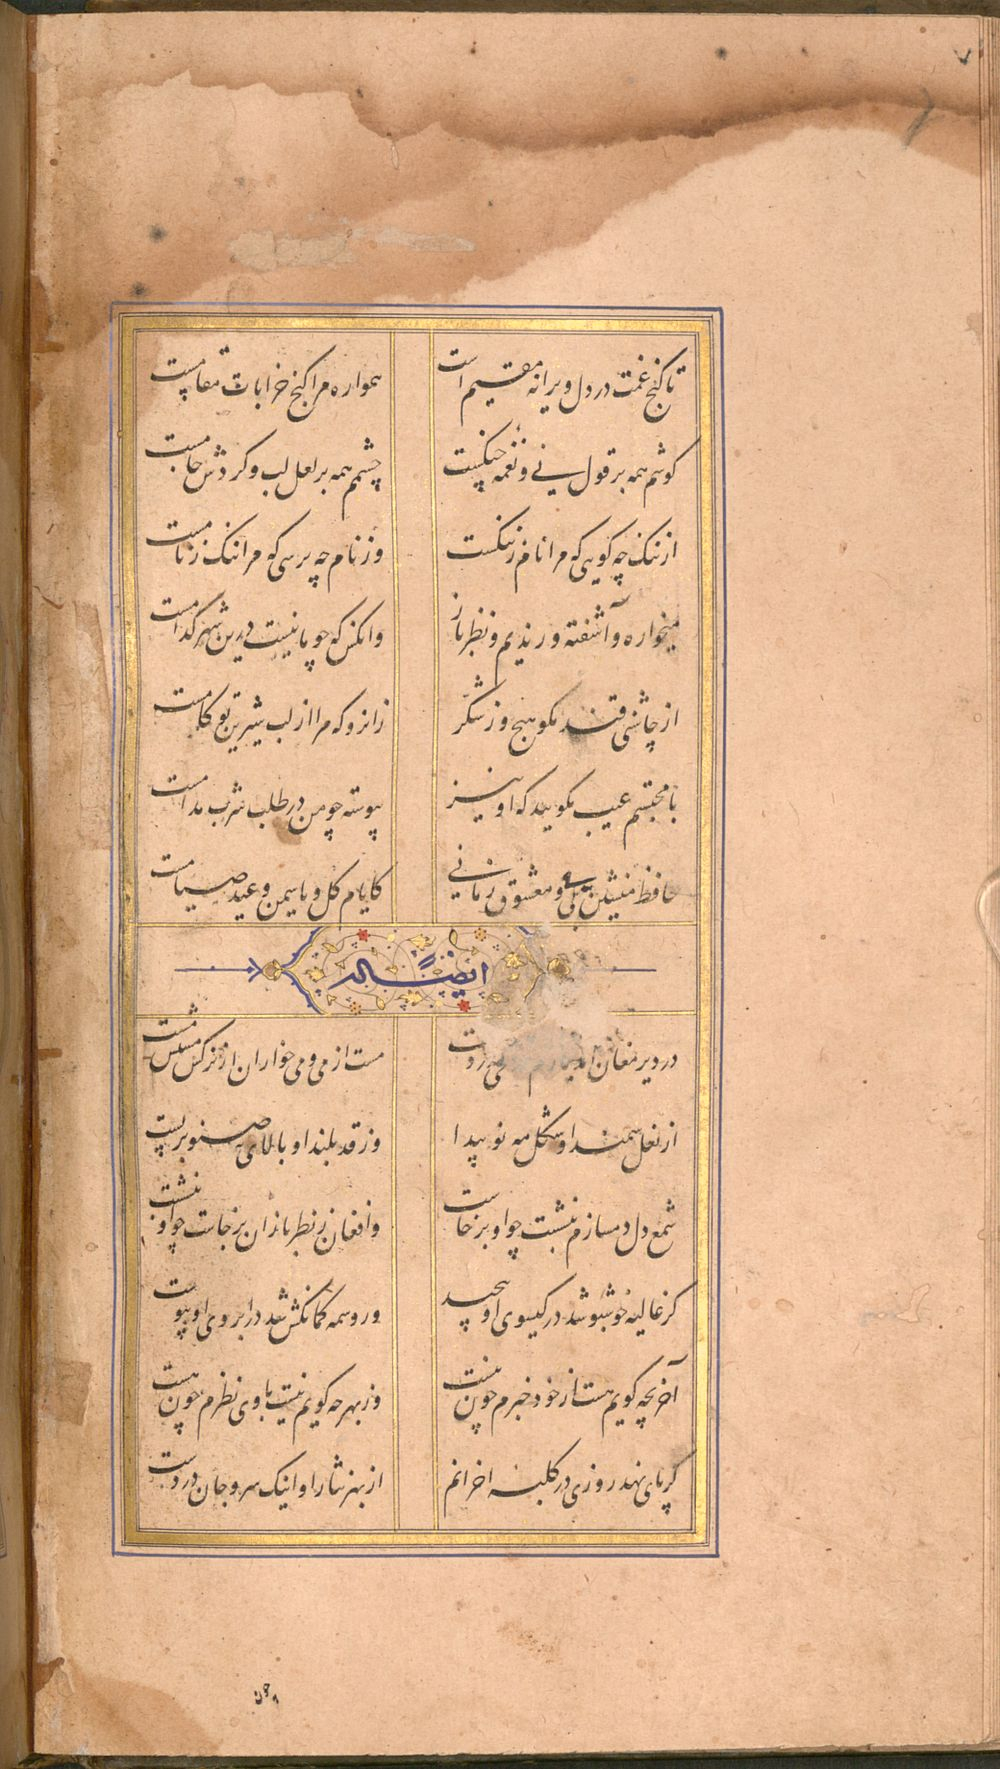 تا گنج غمت در دل ویرانه مقیم است
همواره مرا کنج خرابات مقامست
گوشم همه بر قول نی و نغمه چنگست
چشمم همه بر لعل لب و گردش جامست
از ننگ چه گویی که مرا نام ز ننگست
وز نام چه پرسی که مرا ننگ ز نامست
میخواره و آشفته و رندیم و نظر باز
وانکس که چو ما نیست درین شهر کدامست
از چاشنی قند مگو هیچ و ز شکر
زانرو که مرا از لب شیرین تو کامست
با محتسبم عیب مگویید که او نیز
پیوسته چو من در طلب شرب مدامست
حافظ منشین بی می و معشوق زمانی
کایام گل و یاسمین و عید صیامست
ایضاً له
در دیر مغان آمد یارم
مست از می و می خواران از نرگس مستش مست
از نعل سمند او شکل مه نو پیدا
وز قد بلند او بالای صنوبر پست
شمع دل دمسازم بنشست چو او برخاست
وافغان ز نظر بازان برخاست چو او بنشست
گر غالیه خوشبو شد در گیسوی او پیچید
ور وسمه کمانکش شد در ابروی او پیوست
آخر بچه گویم هست از خود خبرم چون نیست
وز بهر چه گویم نیست با وی نظرم چون هست
گر پای نهد روزی در کلبه احزانم
از بهر نثار او اینک سر و جان در دست